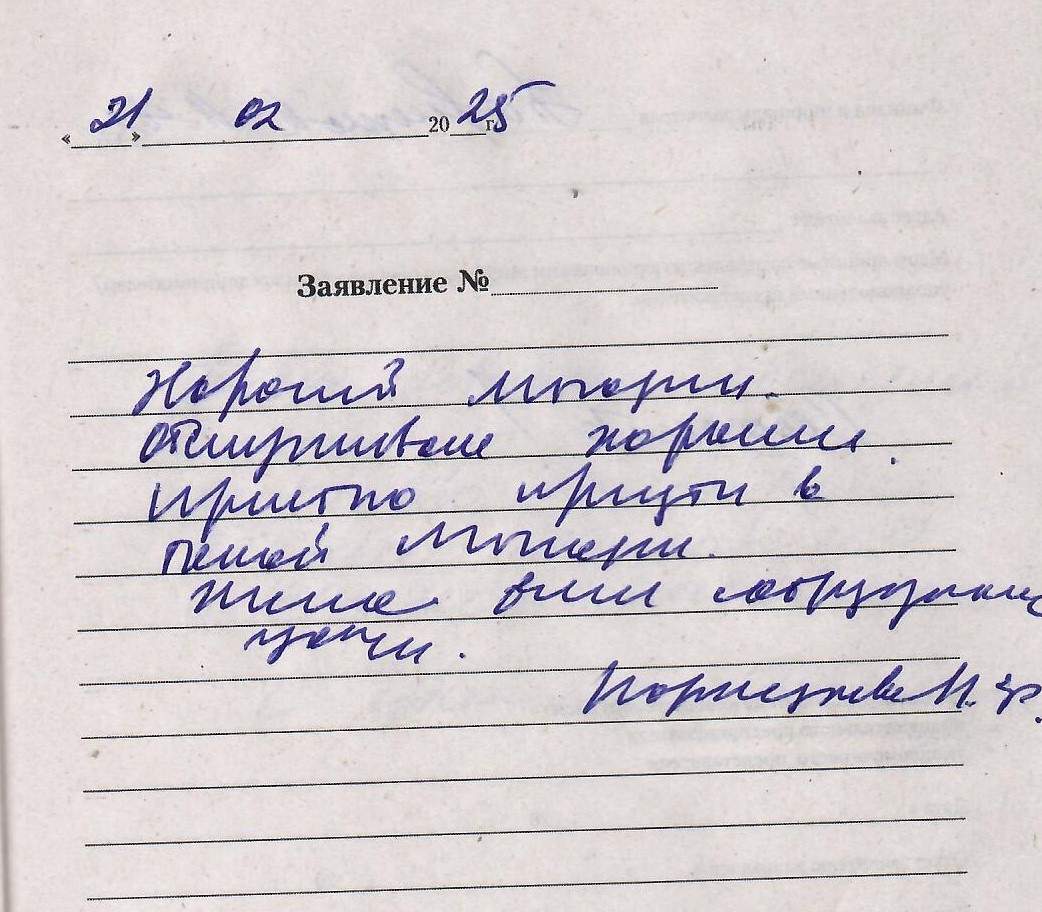 «21» 02 2025 г.
Заявление №
Хороший магазин.
Обслуживание хорошее.
Приятно придти в
такой магазин.
Желаю всем сотрудникам
удачи.